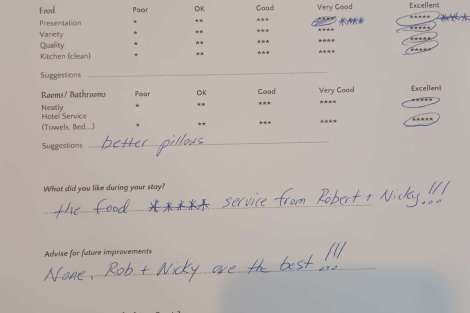 Food Poor OK Good Very Good Excellent
Presentation * ** *** **** **** *****
Variety * ** *** **** *****
Quality * ** *** **** *****
Kitchen (clean) * ** *** **** *****
Suggestions
Rooms/ Bathrooms Poor OK Good Very Good Excellent
Neatly * ** *** **** *****
Hotel Service
(Towels, Bed...) * ** *** **** *****
Suggestions better pillows
What did you like during your stay?
the food ***** service from Robert + Nicky!!!
Advise for future improvements
None, Rob + Nicky are the best !!!